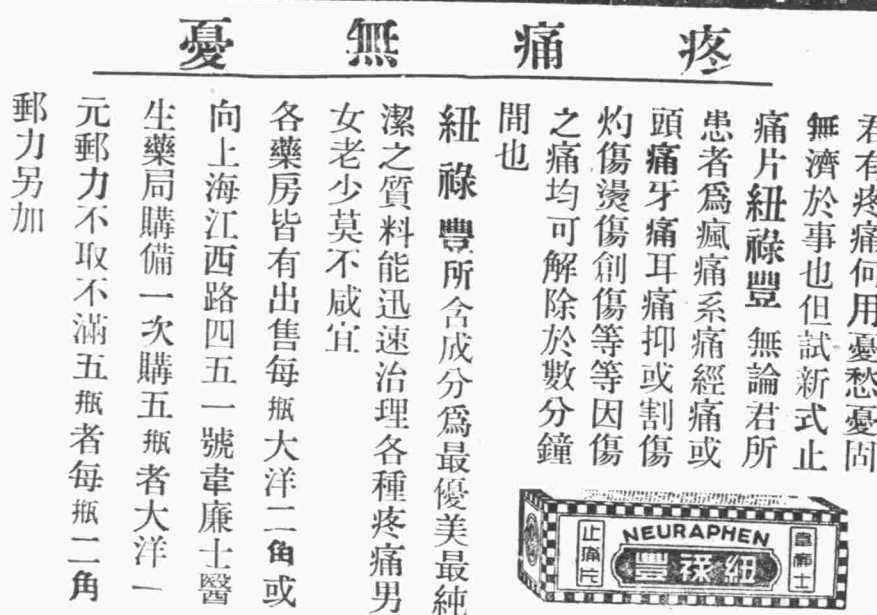 疼痛無憂
君有疼痛何用憂愁憂固
無濟於事也但試新式止
痛片紐祿豐無論君所
患者為瘋痛系痛經痛或
頭痛牙痛耳痛抑或割傷
灼傷燙傷創傷等等因傷
之痛均可解除於數分鐘
間也
紐祿豐所含成分為最優美最純
潔之質料能迅速治理各種疼痛男
女老少莫不咸宜
各藥房皆有出售每瓶大洋二角或
向上海江西路四五一號韋廉士醫
生藥局購備一次購五瓶者大洋一
元郵力不取不滿五瓶者每瓶二角
郵力另加
韋廉士
NEURAPHEN
紐祿豐
止痛片